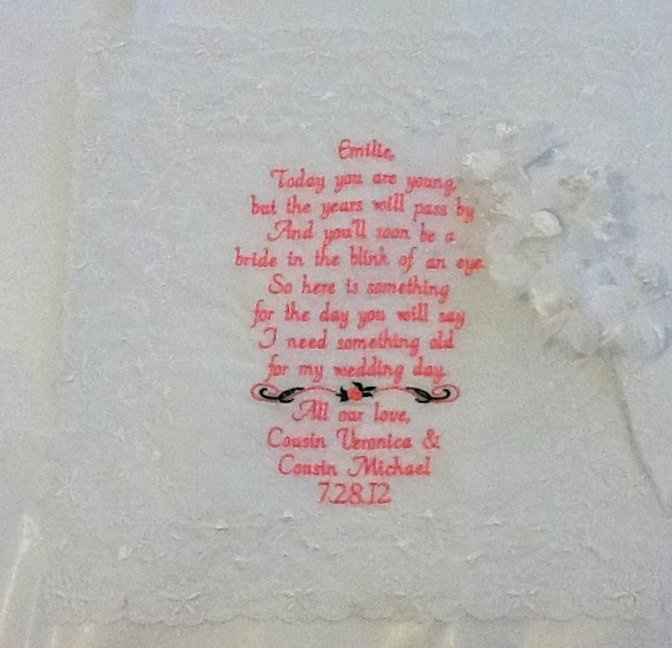 Emilie,
Today you are young,
but the years will pass by
And you'll soon be a
bride in the blink of an eye.
So here is something
for the day you will say
I need something old
for my wedding day.
All our love,
Cousin Veronica &
Cousin Michael
7.28.12